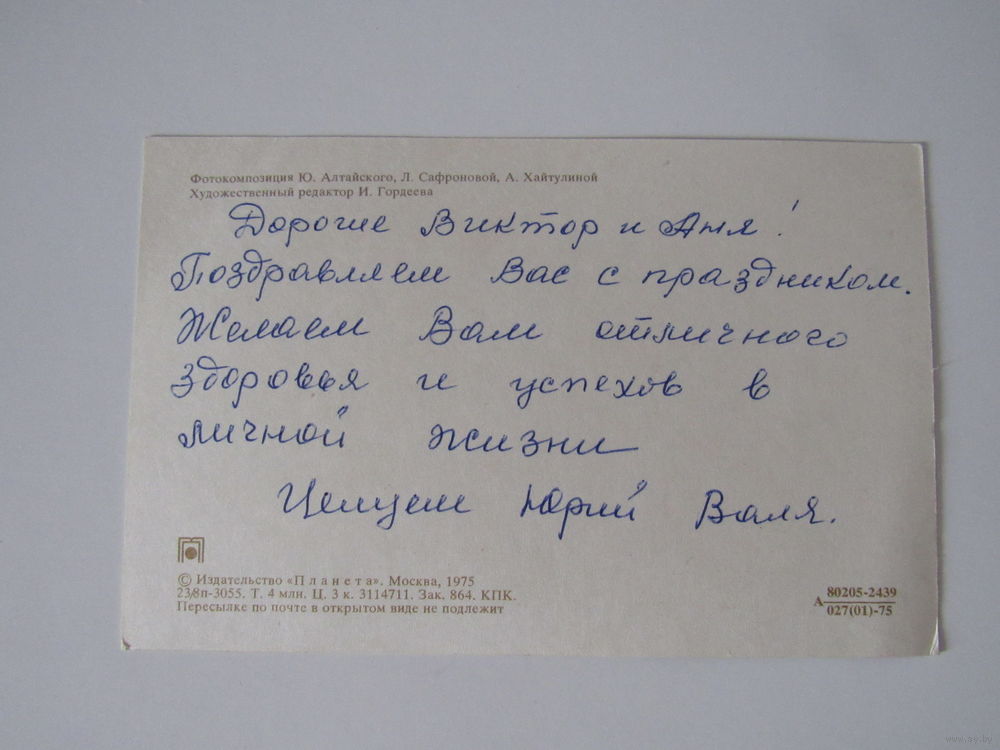 Фотокомпозиция Ю. Алтайского, Л. Сафроновой, А. Хайтулиной
Художественный редактор И. Гордеева
Дорогие Виктор и Аня!
Поздравляем Вас с праздником.
Желаем Вам отличного
здоровья и успехов в
личной жизни
Целуем Юрий Валя.
© Издательство «Планета». Москва, 1975
23/8п-3055. Т. 4 млн. Ц. 3 к. 3114711. Зак. 864. КПК.
Пересылке по почте в открытом виде не подлежит
А 80205-2439
027(01)-75